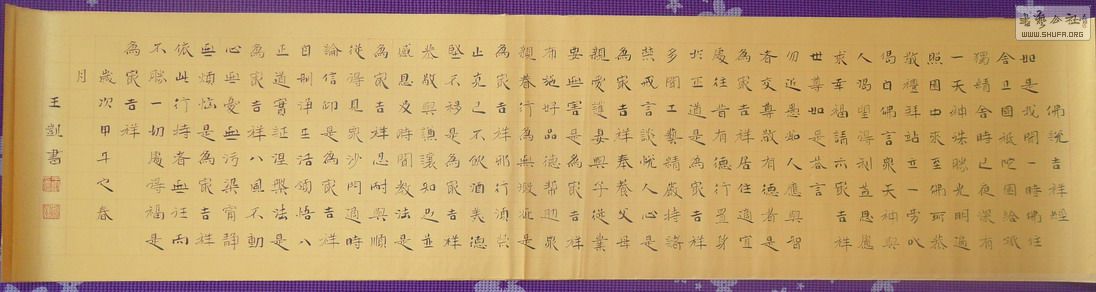 佛說吉祥經
如是我聞一時佛住
舍卫國祗陀園給孤
獨精舍時已夜深有
一天神殊勝光明遍
照園由來至佛所恭
敬禮拜站立一旁以
偈白佛言眾天神與
人渴望得利益思慮
求幸福請示最吉祥
世尊如是答言
勿近愚人應與智
者交尊敬有德者是
為最吉祥居住適宜
處往昔有德行置身
於正道是為最吉祥
多聞工藝精嚴持諸
禁戒言談悅人心是
為最吉祥奉養父母
親愛護妻與子從業
要無害是為最吉祥
布施好品德幫助眾
親眷行為無瑕疵是
為最吉祥邪行須禁
止克己不飲酒美德
堅不移是為最吉祥
恭敬與謙讓知足並
感恩及時聞教法是
為最吉祥忍耐與順
從得見眾沙門適時
論信仰是為最吉祥
自制淨生活領悟八
正道實證涅槃法是
為最吉祥八風不動
心無憂無污染寧靜
無煩惱是為最吉祥
依此行持者無往而
不勝一切處得福是
為最吉祥
歲次甲午之春
月
王凱書
書藝公社
WWW.SHUFA.ORG